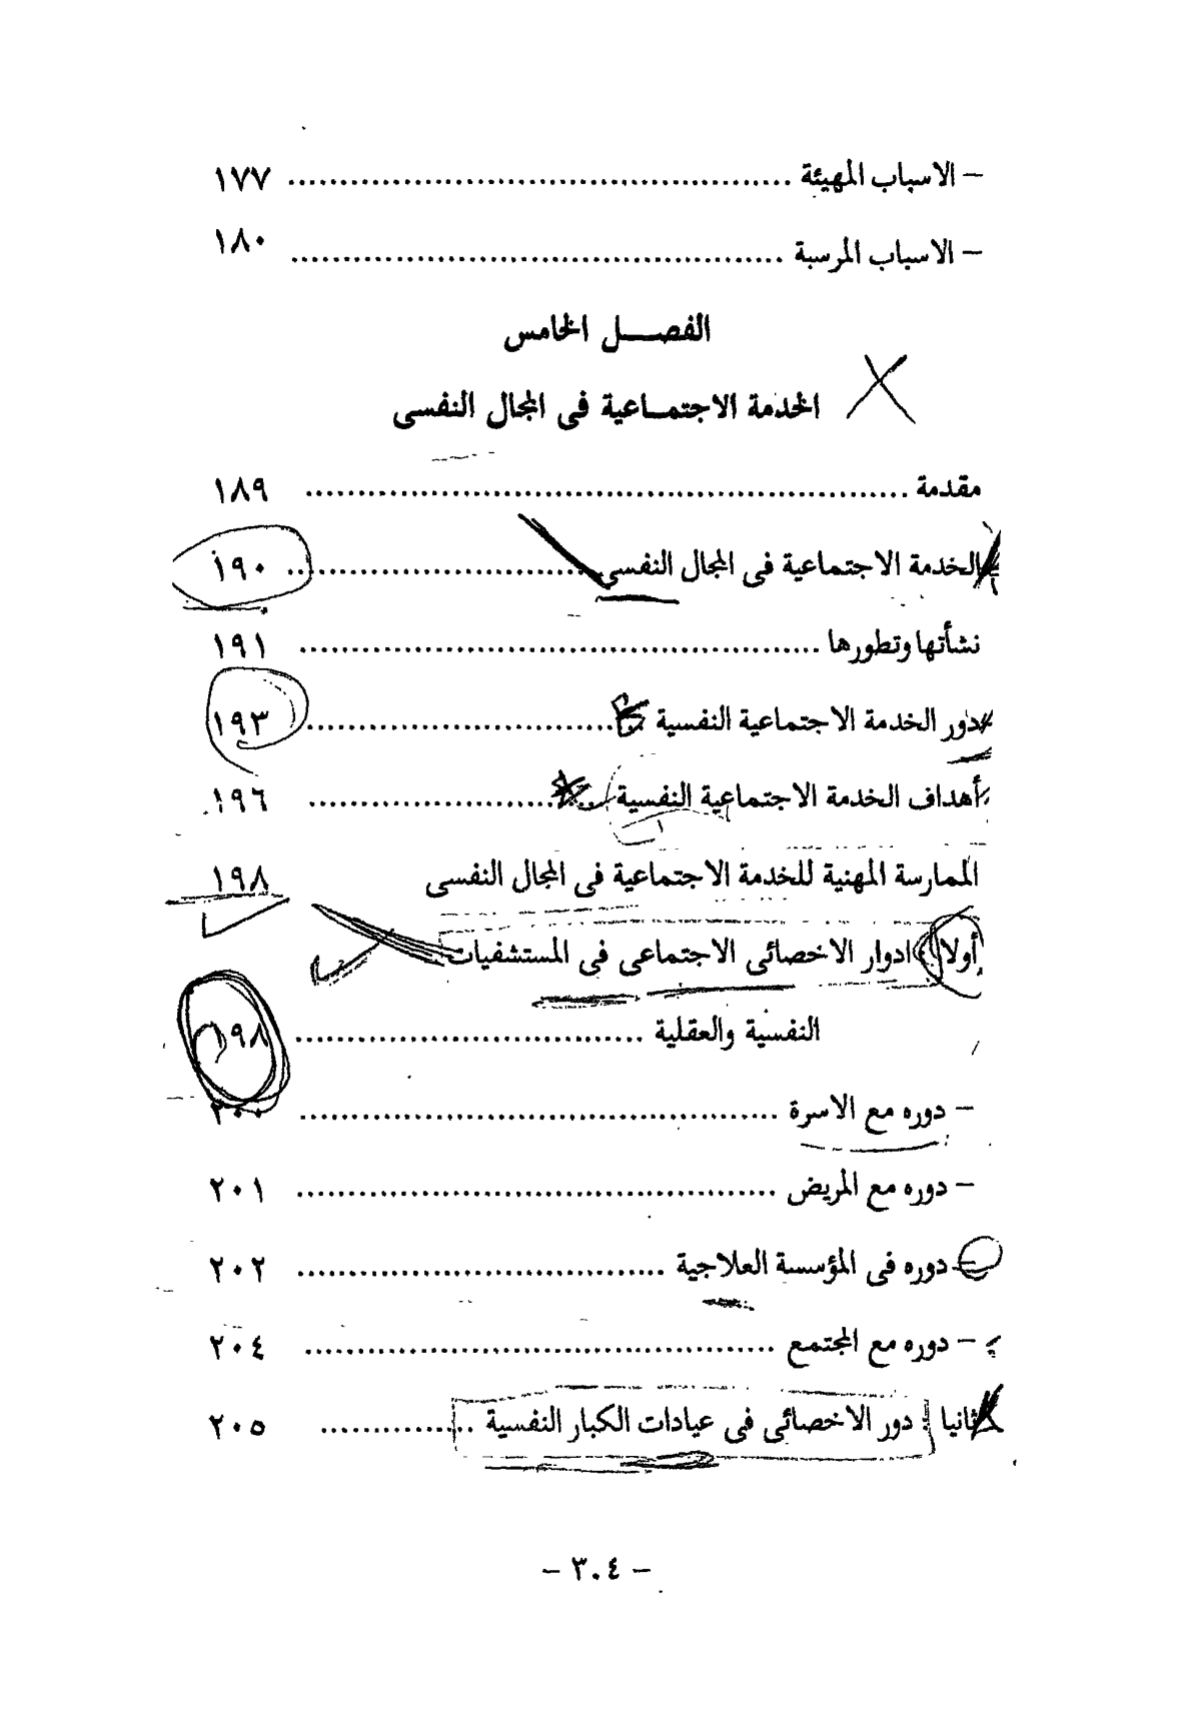 – الاسباب المهيئة .................................................. ١٧٧
– الاسباب المرسبة .................................................. ١٨٠
الفصـــل الخامس
الخدمة الاجتمـاعية فى المجال النفسى
مقدمة .................................................. ١٨٩
الخدمة الاجتماعية فى المجال النفسى .............................. ١٩٠
نشأتها وتطورها .................................................. ١٩١
دور الخدمة الاجتماعية النفسية .............................. ١٩٣
أهداف الخدمة الاجتماعية النفسية .............................. ١٩٦
الممارسة المهنية للخدمة الاجتماعية فى المجال النفسى ١٩٨
أولا : ادوار الاخصائى الاجتماعى فى المستشفيات
النفسية والعقلية .................................. ١٩٨
– دوره مع الاسرة .................................................. ٢٠٠
– دوره مع المريض .................................................. ٢٠١
– دوره فى المؤسسة العلاجية .................................... ٢٠٢
– دوره مع المجتمع .................................................. ٢٠٤
ثانيا : دور الاخصائى فى عيادات الكبار النفسية ............... ٢٠٥
– ٣٠٤ –